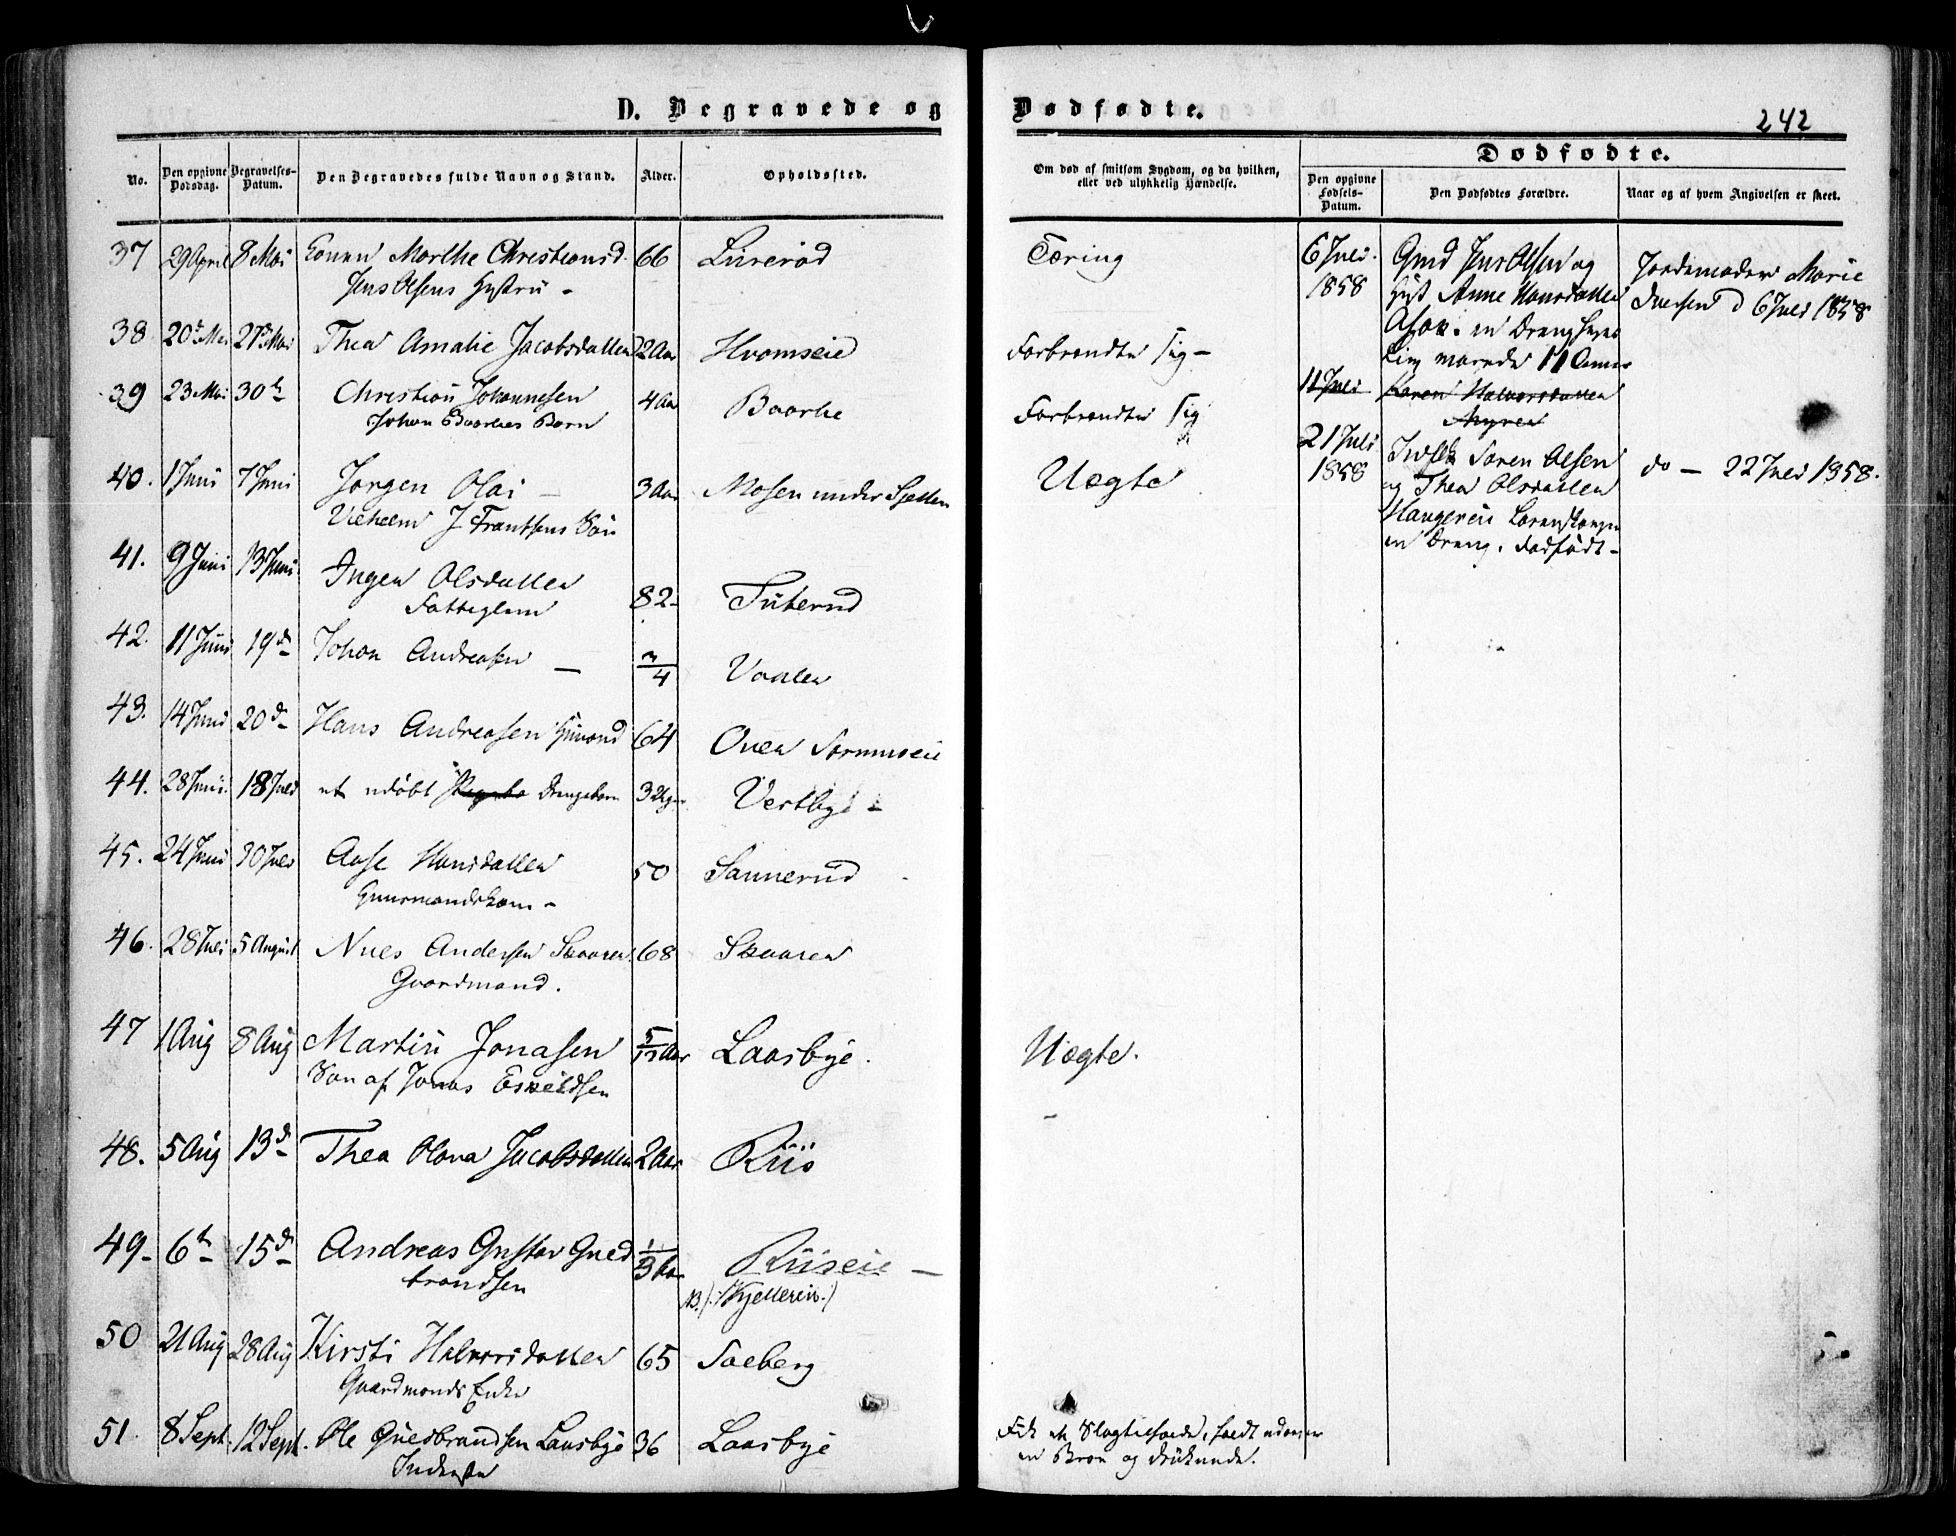 D. Begravede og Dødfødte.
242
No.
Den opgivne Dødsdag.
Begravelses-Datum.
Den Begravedes fulde Navn og Stand.
Alder.
Opholdssted.
Om død af smitsom Sygdom, og da hvilken,
eller ved ulykkelig Hændelse.
Dødfødte.
Den opgivne Fødsels-Datum.
Den Dødfødtes Forældre.
Naar og af hvem Angivelsen er skeet.
37 29 April 8 Mai Marthe Christiansd. 66 Lurerød Tæring
Jens Olsens Hustru -
38 20de Mai 27de Mai Thea Amalie Jacobsdatter 2 Aar Hvamseie Forbrændte sig -
39 23 Mai 30te Christian Johannesen 4 Aar Baarlie Forbrændte sig
Johan Baarlies Barn
40. 1 Juni 7 Juni Jørgen Olai - 3 Aar Mosen under Uægte
Vilhelm J Frantsens Søn
41. 9 Juni 13 Juni Inger Olsdatter 82 - Tuterud
Fattiglem
42. 11 Juni 19de Johan Andreasen - 3/4 Vaaler
43. 14 Juni 20de Hans Andreasen 64
44. 28 Juni 18 Juli et udøbt Drengebarn 3 Vestbye -
45. 24 Juni 30 Juli Aase Hansdatter 50 Sannerud
Gaardmandskone -
46. 28 Juli 5 August Niels Andersen Skaaren 68 Skaaren
Gaardmand.
47 1 Aug 8 Aug Martin Jonasen 5/12 Aar Laasbye. Uægte.
Søn af Jonas Eskildsen
48. 5 Aug 13de Thea Olava Jacobsdatter 2 Aar Riis
49 - 6te 15de Andreas Gustav Guld 1/3 Aar Riiseie -
brandsen NB. (: Kjellereie :)
50 21 Aug 28 Aug Kirsti Halvorsdatter 65 Solberg
Gaardmands Enke
51. 8 Sept 12 Sept. Ole Gulbrandsen Laasbye 36 Laasbye Fik et
Inderste en Bro og druknede.
6 Juli. Gmd Jens Olsen og Jordemoder Marie
1858 Hust Anne Hansdatter Iversen d 6 Juli 1858
en Dreng
11 Juli Karen Halvorsdatter
Myren
21 Juli Søren Olsen do - 22 Juli 1858.
1858 og Thea Olsdatter
Haugereie
en Dreng. dødfødt -